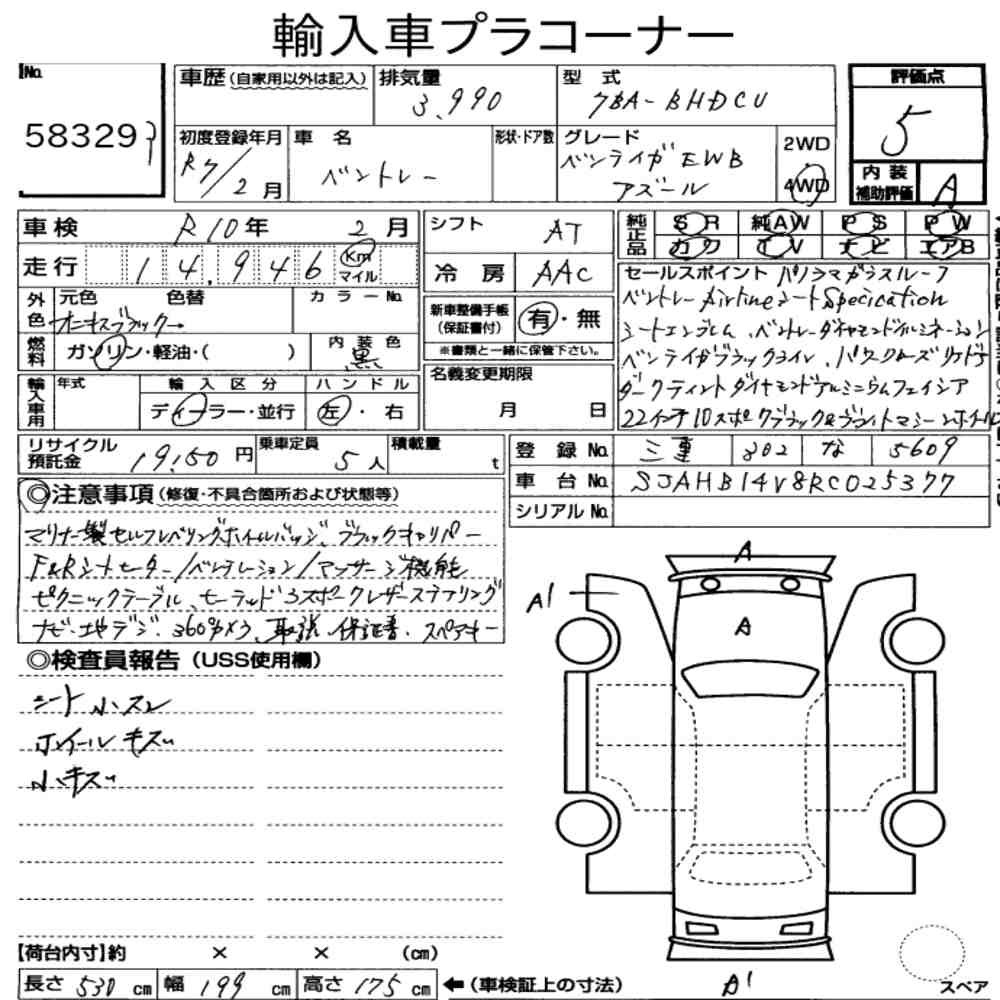 輸入車プラコーナー
No.
58329
車歴(自家用以外は記入)
排気量
3,990
型式
7BA-BHDCU
評価点
5
初度登録年月
R7/2月
車名
ベントレー
形状・ドア数
グレード
ベンテイガ EWB
アズール
2WD
4WD
内装
補助評価
A
車検 R10年 2月
シフト AT
純正品
SR 純AW PS PW
カワ TV ナビ エアB
走行 14,946 Km マイル
冷房 AAC
セールスポイント パノラマガラスルーフ
ベントレー Airlineシート Specication
シートエンブレム、ベントレーダイヤモンドイルミネーション
ベンテイガブラックライン、パワークローズリヤドア
ダークティントダイヤモンドアルミニウムフェイシア
22インチ10スポークブラック&ブライトマシーンホイール
外色 元色 色替 カラーNo.
オニキスブラック→
新車整備手帳
(保証書付)
有・無
※書類と一緒に保管下さい。
燃料 ガソリン・軽油・( )
内装色 黒
輸入車用 年式 輸入区分 ハンドル
ディーラー・並行 左・右
名義変更期限
月 日
リサイクル
預託金 19,150円
乗車定員 5人
積載量 t
登録No. 三重 302 な 5609
車台No. SJAHB14V8RC025377
シリアルNo.
◎注意事項(修復・不具合箇所および状態等)
マリナー製セルフレベリングホイールバッジ、ブラックキャリパー
F&Rシートヒーター/ベンチレーション/マッサージ機能
ピクニックテーブル、ヒーテッド3スポークレザーステアリング
ナビ・地デジ・360°カメラ、取説、保証書、スペアキー
◎検査員報告(USS使用欄)
シート小スレ
ホイールキズ
小キズ
A
A1
A
A1
【荷台内寸】約 × × (cm)
長さ 530 cm 幅 199 cm 高さ 175 cm ←(車検証上の寸法)
スペア